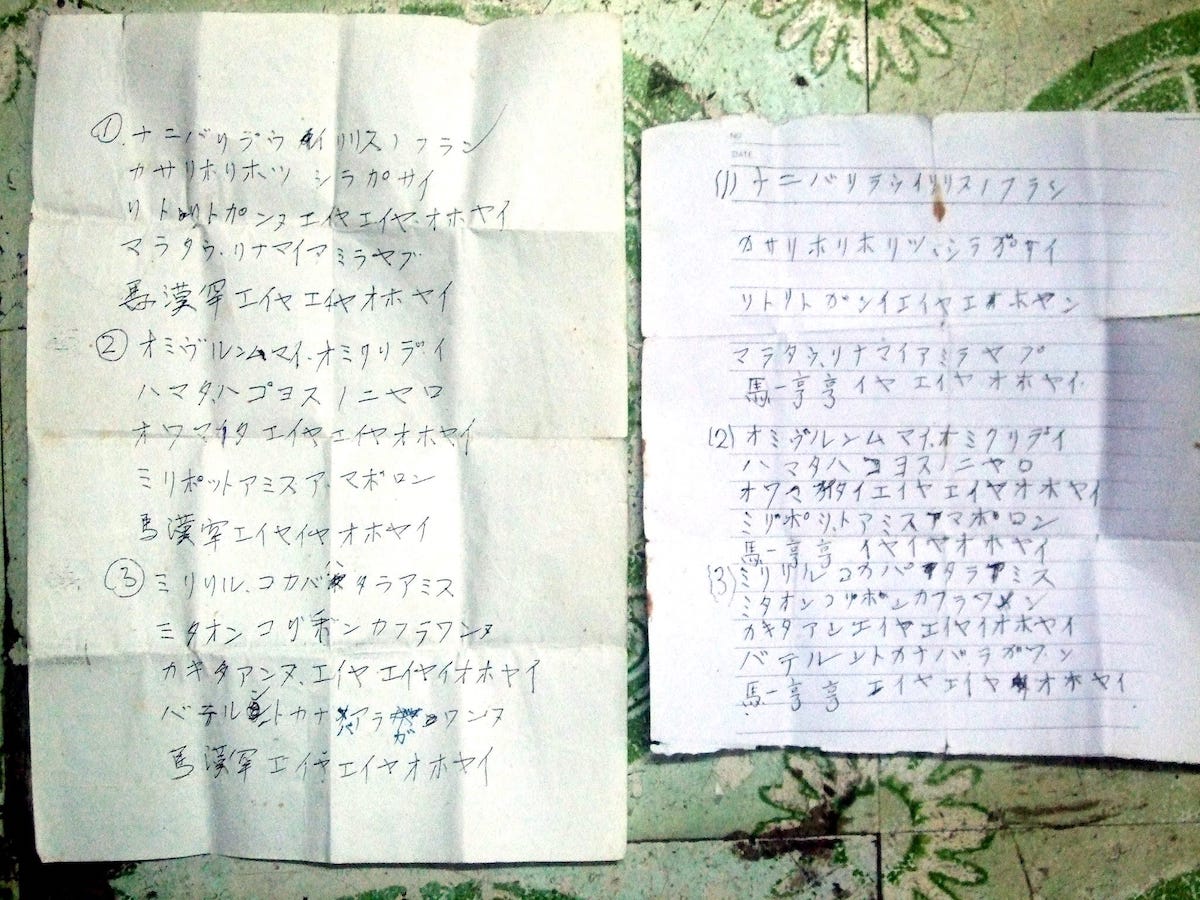 ①.ナニバリデウ イリリスノフラン
カサリホリホツ シラガサイ
リトリトガンヌ エイヤエイヤ.オホヤイ
マラタウ.リナマイアミラヤブ
馬漢罕エイヤエイヤオホヤイ
② オミヴルンムマイ.オミクリデイ
ハマタハゴヨスノニヤロ
オワマイタ エイヤエイヤオホヤイ
ミリポットアミスア.マボロン
馬漢罕エイヤイヤオホヤイ
③ ミリリル.コカバタラアミス
ミタオンコリボンカフラワンヌ
カキタアンヌ.エイヤエイヤイオホヤイ
バテルントカナバラガワンヌ
馬漢罕エイヤエイヤオホヤイ
NO.
DATE
(1) ナニバリデウイリリスノフラン
カサリホリホリツ、シラガサイ
リトリトガンイエイヤエオホヤン
マラタウ.リナマイアミラヤブ
馬一亨亨 イヤ エイヤ オホヤイ
(2) オミヴルンムマイ.オミクリデイ
ハマタハゴヨスノニヤロ
オワマイタイエイヤエイヤオホヤイ
ミリポリトアミスアマボロン
馬一亨亨 イヤイヤオホヤイ
(3) ミリリルコカバタラアミス
ミタオンコリボンカフラワン
カキタアンエイヤエイヤイオホヤイ
バテルントカナバラガワン
馬一亨亨 エイヤエイヤオホヤイ